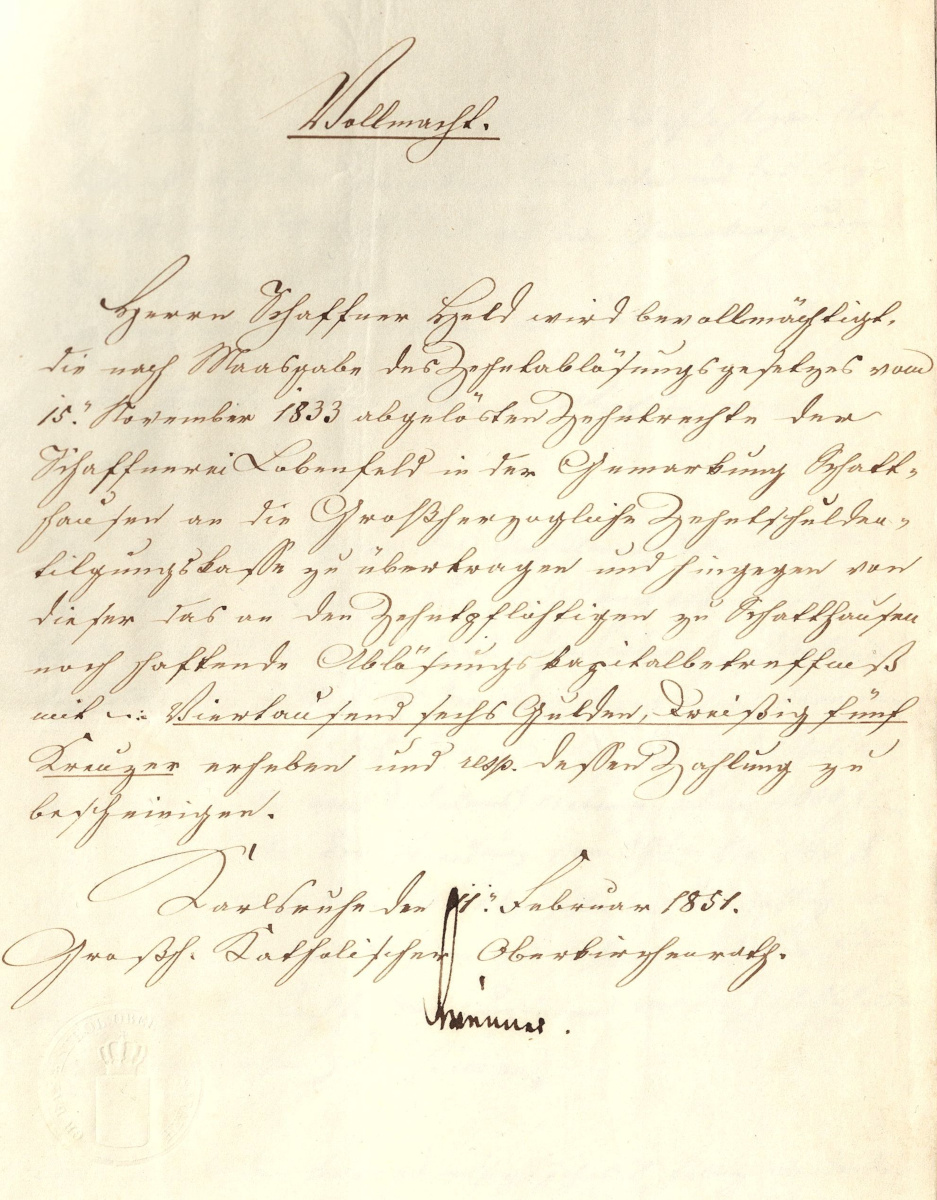 Vollmacht.
Herrn Schaffner Held wird bevollmächtigt,
die nach Maasgabe des Zehntablösungsgesetzes vom
15. November 1833 abgelösten Zehntrechte der
Schaffnerei Lobenfeld in der Gemarkung Schatt-
hausen an die Großherzogliche Zehntschulden-
tilgungskasse zu übertragen und hingegen von
dieser das an den Zehntpflichtigen zu Schatthausen
noch haftende Ablösungskapitalbetreffniß
mit Viertausend sechs Gulden, dreißig fünf
Kreuzer erheben und resp. dessen Zahlung zu
bescheinigen.
Karlsruhe den 11. Februar 1851.
Großh. Katholischer Oberkirchenrath.